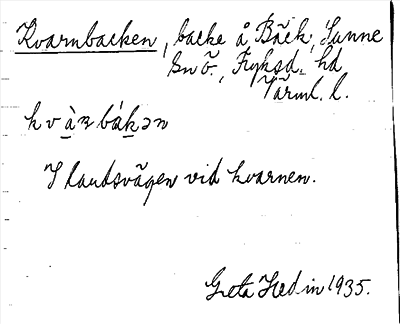 Kvarnbacken, backe å Bäck, Sunne
sn ö., Fryksd. hd
Värml. l.
kvà̱ꝛbák̲ən
I landsvägen vid kvarnen.
Greta Hedin 1935.